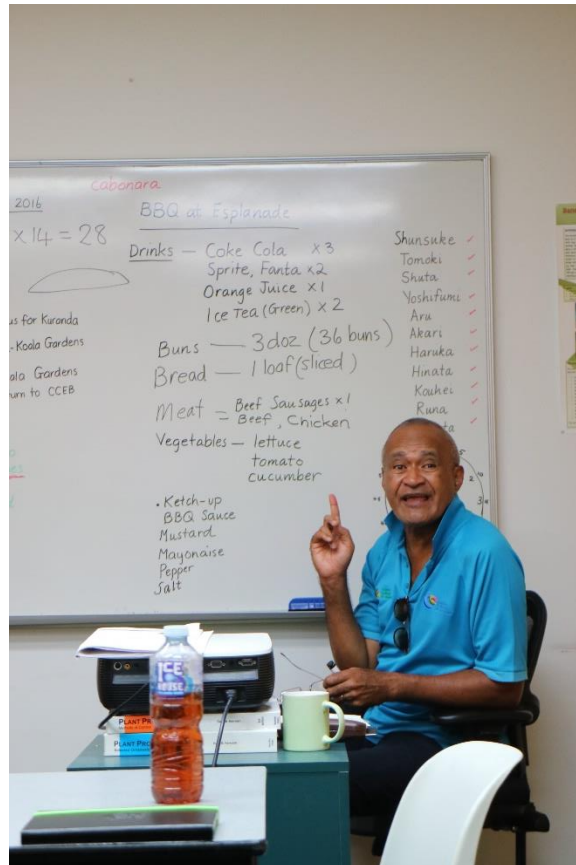 Cabonara
2016
x14 = 28
us for Kuranda
Koala Gardens
ala Gardens
urn to CCEB
BBQ at Esplanade
Drinks — Coke Cola x3
Sprite, Fanta x2
Orange Juice x1
Ice Tea (Green) x2
Buns — 3 doz (36 buns)
Bread — 1 loaf (sliced)
Meat = Beef Sausages x1
Beef, Chicken
Vegetables — lettuce
tomato
cucumber
. Ketch-up
BBQ Sauce
Mustard
Mayonaise
Pepper
Salt
Shunsuke ✓
Tomoki ✓
Shuta ✓
Yoshifumi ✓
Aru ✓
Akari ✓
Haruka ✓
Hinata ✓
Kouhei ✓
Runa ✓
ta ✓
ICE
HOUSE
PLANT PR
PLANT PRO